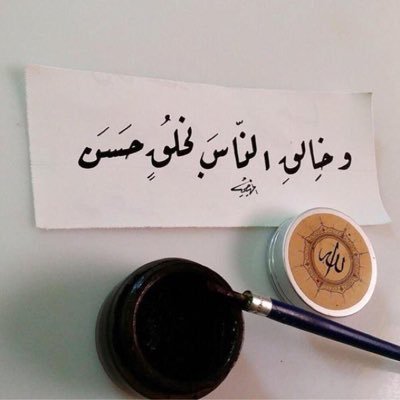 وخالقِ النّاسَ بخلُقٍ حَسَن
الله